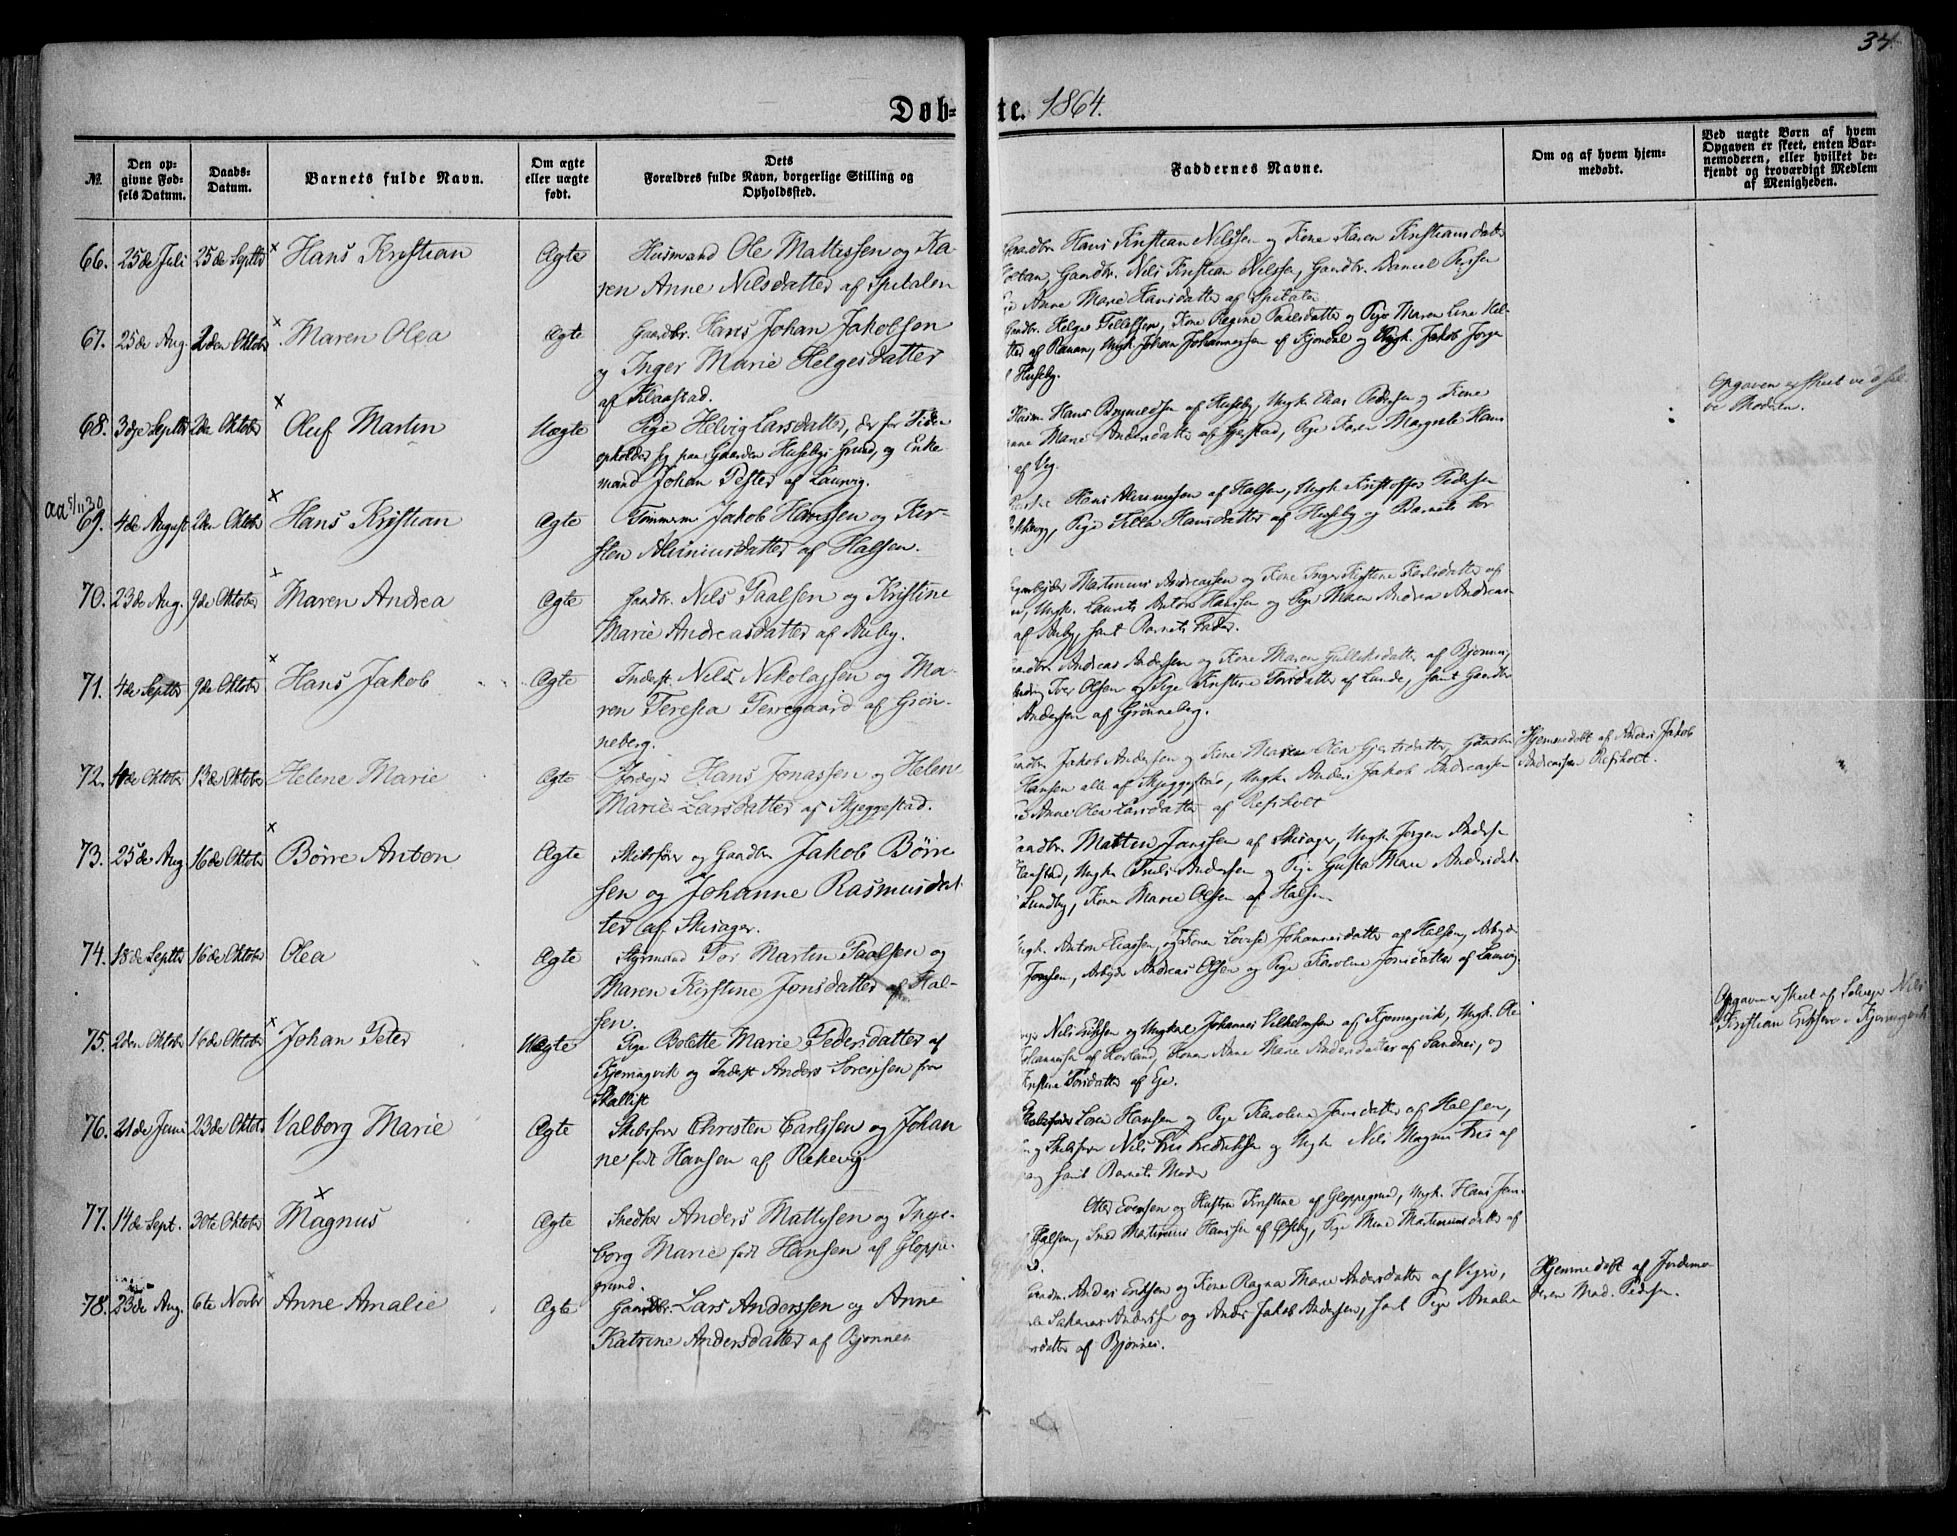 34.
Døb=te. 1864.
№
Den op-
givne Fød-
sels Datum.
Daabs-
Datum.
Barnets fulde Navn.
Om ægte
eller uægte
født.
Dets
Forældres fulde Navn, borgerlige Stilling og
Opholdssted.
Faddernes Navne.
Om og af hvem hjem-
medøbt.
Ved uægte Børn af hvem
Opgaven er skeet, enten Bar-
nemoderen, eller hvilket be-
kjendt og troværdigt Medlem
af Menigheden.
66. 25de Juli 25de Septbr × Hans Kristian Ægte Husmand Ole Mattissen og Ka-
ren Anne Nilsdatter af Spitalen
Gaardbr. Hans Kristian Nilssen og Kone Karen Kristiansdatter
Gaardbr. Nils Kristian Nilssen, Gaardbr. Daniel
Anne Marie Hansdatter af Spitalen
67. 25de Aug. 2den Oktober × Maren Olea Ægte Gaardbr. Hans Johan Jakobsen
og Inger Marie Helgesdatter
af Klaastad.
Gaardbr. Helge Tollefsen, Kone Regine Paulsdatter og Pige Maren Line Hel-
af Ranan, Ungk. Johan Johannessen af Gjøndal og Ungk. Jakob Jørgen
Huseby.
68. 3dje Septbr 2den Oktober × Oluf Martin Uægte Pige Helvig Larsdatter, der for Tiden
opholder sig paa Gaarden Husebys Grund, og Enke-
mand Johan Peter af Laurvig.
Husm. Hans Brynildsen af Huseby, Ungk. Elias Pedersen og Kone
Anne Marie Andersdatter af Gjerstad, Pige Karen Margrete Hans
af Veg.
Opgaven er skeet ved sel-
ve Moderen.
aa 5/11 30
69. 4de August 2den Oktober × Hans Kristian Ægte Tømmerm. Jakob Hanssen og Kir-
sten Aluniusdatter af Halsen.
Hans Alunussen af Halsen, Ungk. Kristoffer Pedersen
Pige Hansdatter af Huseby og Barnets Far
70. 23de Aug. 9de Oktober × Maren Andrea Ægte Gaardbr. Nils Paalsen og Kristine
Marie Andreasdatter af Auby.
Martinius Andreassen og Kone Inger Kristine Karlsdatter af
Ungk. Laurits Anton Hanssen og Pige Maren Andrea Andreas-
af Auby, samt Barnets Fader.
71. 4de Septbr 9de Oktober × Hans Jakob Ægte Inderst Nils Nikolassen og Ma-
ren Teresia Terregaard af Grøn-
neberg.
Gaardbr. Andreas Andersen og Kone Maren Gulliksdatter af Bjønnes,
Iver Olsen og Pige Kristine Torsdatter af Lunde, samt Gaardbr
Andersen af Grønneberg.
72. 4de Oktober 13de Oktober Helene Marie Ægte Jordeier Hans Jonassen og Helene
Marie Larsdatter af Skjeggestad.
Gaardbr. Jakob Andersen og Kone Maren Olea Gjertsdatter, Gaardbr
Hansen alle af Skjeggestad, Ungk. Anders Jakob Andreassen
Anne Olea Larsdatter af Refsholt
Hjemmedøbt af Anders Jakob
Andreassen Refsholt.
73. 25de Aug 16de Oktober × Børre Anton Ægte Skibsfører og Gaardbr Jakob Børre-
sen og Johanne Rasmusdat-
ter af Skisager.
Gaardbr. Martin Janssen af Skisager, Ungk. Jørgen Andersen
Klaastad, Ungk. Truls Andersen og Pige Gusta Marie Andersdat-
Lundby, Kone Marie Olsen af Halsen
74. 18de Septbr 16de Oktober Olea Ægte Styrmand Tor Martin Paalsen og
Maren Kirstine Jonsdatter af Hal-
sen.
Ungk. Anton Eliassen, og Kone Lovise Johannesdatter af Halsen, Arbejder
Jonsen, Arbejder Andreas Olsen og Pige Karoline Jonsdatter af Laurvig.
75. 2den Oktober 16de Oktober × Johan Peter Uægte Pige Bolette Marie Pedersdatter af
Kjerringvik og Inderst Anders Sorensen fra
Skallist
Nils Eriksen og Ungkarl Johannes Vilhelmsen af Kjerringvik, Ungk. Ole
Johannesen af Hovland, Konen Anne Marie Andersdatter af Sandnes, og
Kristine Torsdatter af Eje.
Opgaven er skeet af Selveier Nils
Kristian Eriksen i Kjerringvik
76. 21de Juni 23de Oktober Valborg Marie Ægte Skibsfører Christen Carlssen og Johan-
ne født Hansen af Rekevig
Skibsfører Søren Hansen og Pige Karoline Jansdatter af Halsen,
og Skibsfører Nils Friis Fredriksen og Ungk. Nils Magnus Friis af
samt Barnets Moder
77. 14de Sept. 30te Oktober × Magnus Ægte Snedker Anders Mattissen og Inge-
borg Marie født Hansen af Gloppe-
grund.
Otter Evensen og Hustru Kristine af Gloppegrund, Ungk. Hans Jan-
Halsen, Sned. Martinius Hanssen af Østby, Pige Mine Martiniusdatter af
78. 23de Aug. 6te Novbr × Anne Amalie Ægte Gaardbr. Lars Anderssen og Anne
Katrine Andersdatter af Bjønnes
Gaardm. Anders Eriksen og Kone Ragna Marie Andersdatter af Vejri,
Andersen og Anders Jakob Andersen, samt Pige Amalie
datter af Bjønnes.
Hjemmedøbt af Jordemo-
deren Mad. Pedersen.